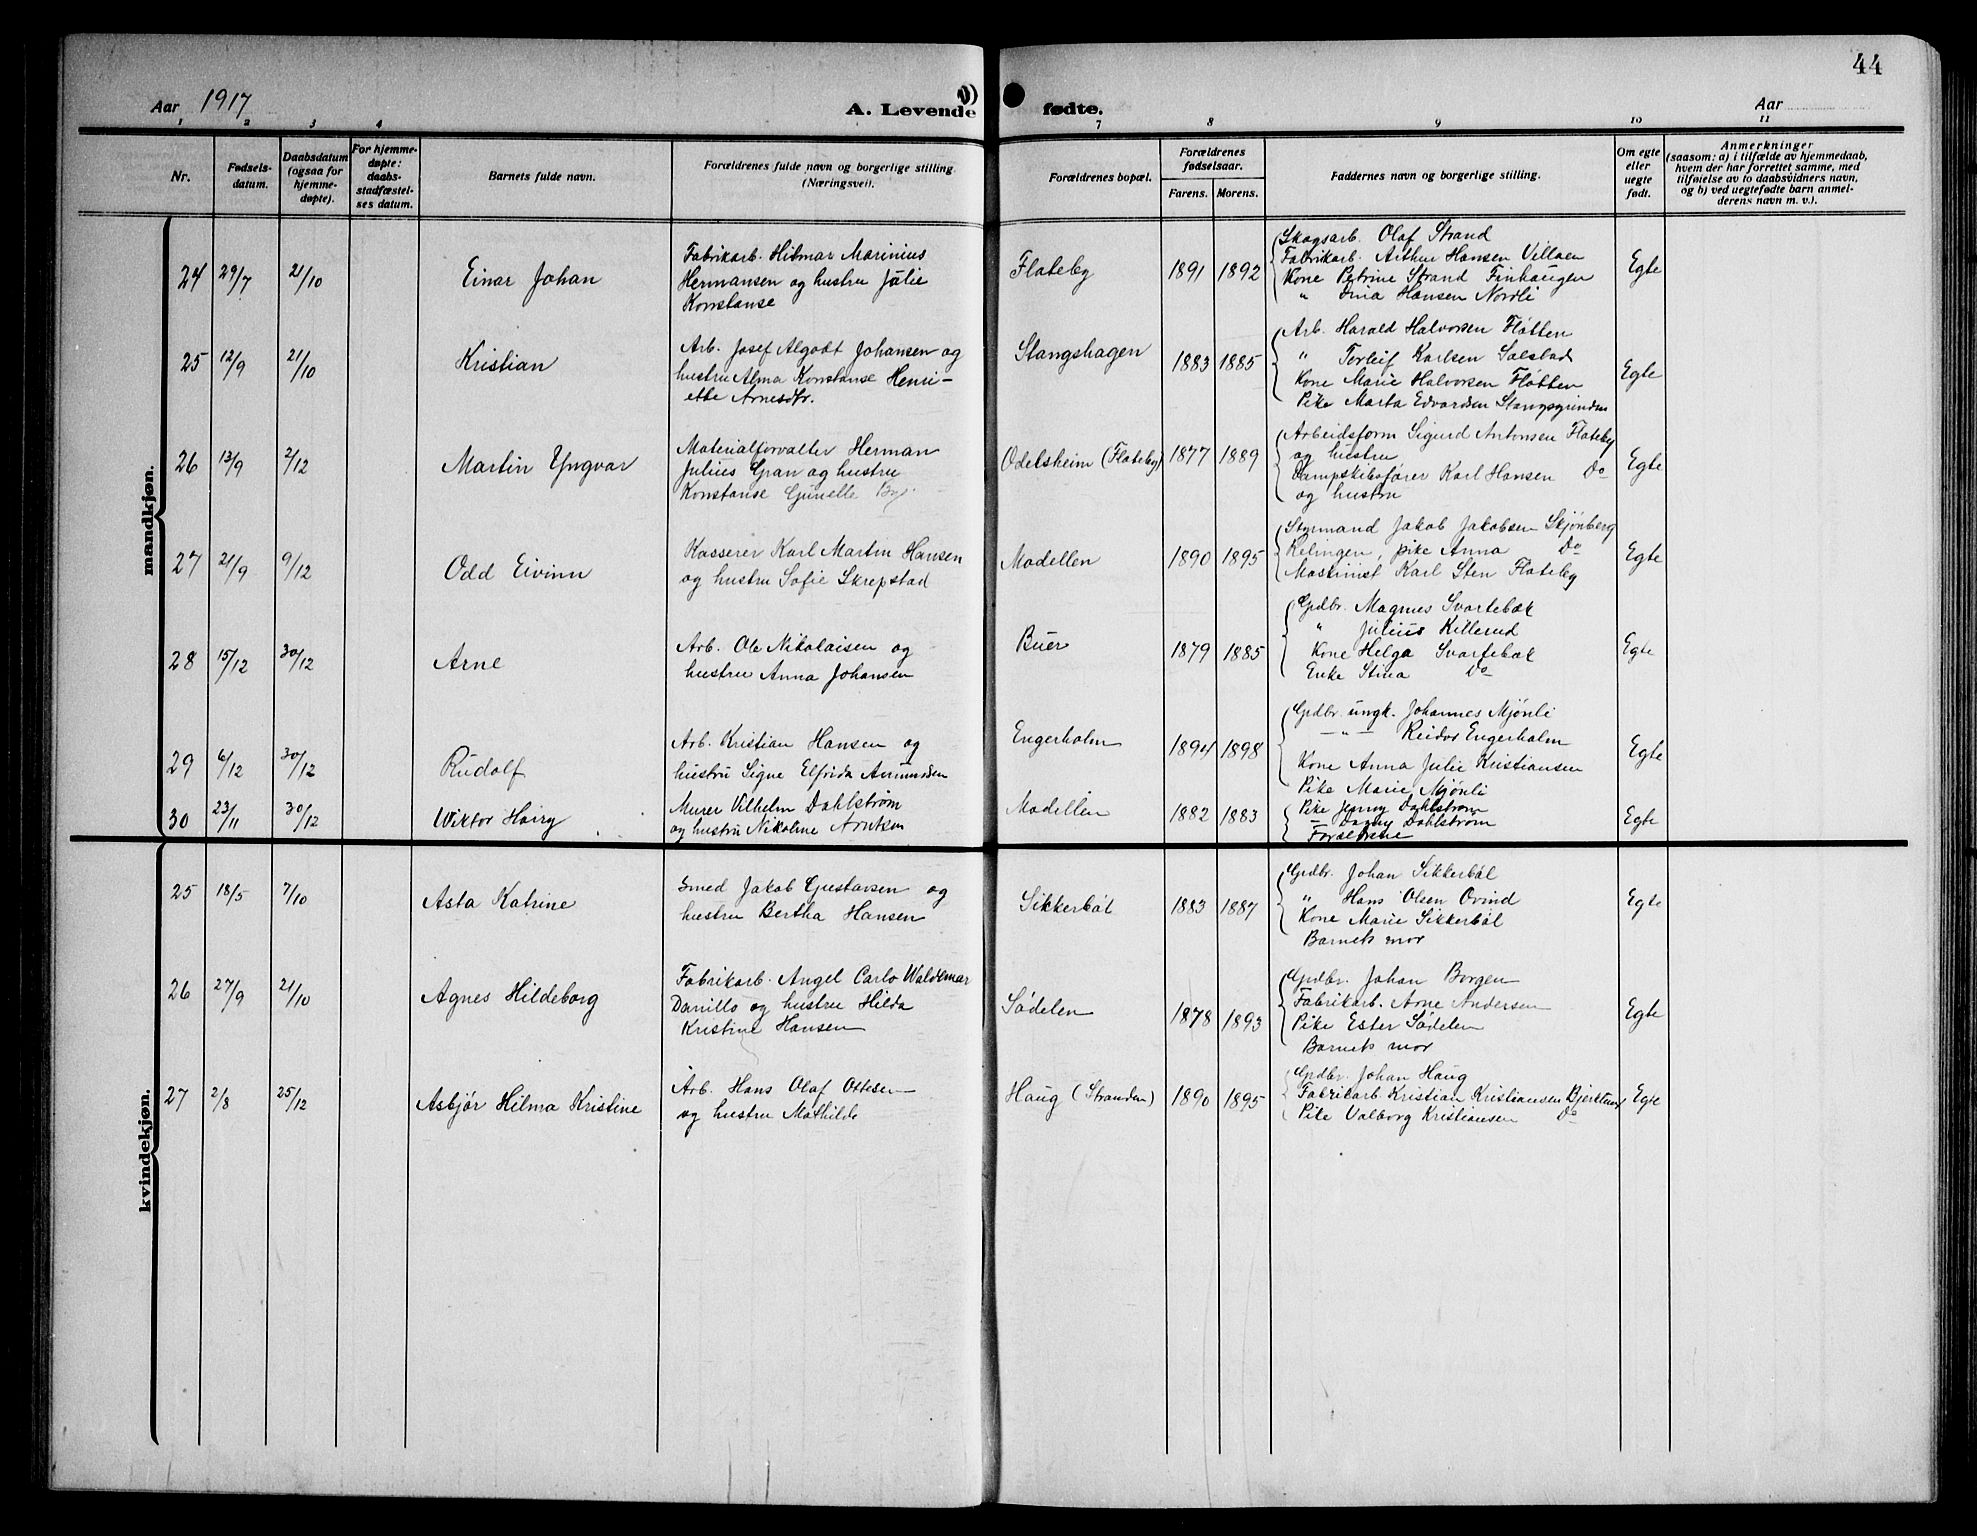 44
Aar 1917
A. Levende
fødte.
Aar
1 2 3 4
7 8 9 10 11
Nr.
Fødsels-
datum.
Daabsdatum
(ogsaa for
hjemme-
døpte).
For hjemme-
døpte:
daabs-
stadfæstel-
ses datum.
Barnets fulde navn.
Forældrenes fulde navn og borgerlige stilling
(Næringsvei).
Forældrenes bopæl.
Forældrenes
fødselsaar.
Farens. Morens.
Faddernes navn og borgerlige stilling.
Om egte
eller
uegte
født.
Anmerkninger
(saasom: a) i tilfælde av hjemmedaab,
hvem der har forrettet samme, med
tilføielse av to daabsvidners navn,
og b) ved uegtefødte barn anmel-
derens navn m. v.).
mandkjøn.
24 29/7 21/10 Einar Johan
Fabrikarb. Hilmar Marinius
Hermansen og hustru Julie
Konstanse
Flateby 1891 1892
Skogsarb. Olaf Strand
Fabrikarb. Arthur Hansen Villaen
Kone Petrine Strand Finhaugen
" Hansen Nordli
Egte
25 12/9 21/10 Kristian
Arb. Josef Algodt Johansen og
hustru Alma Konstanse Henri-
ette Arnesdtr.
Stangshagen 1883 1885
Arb. Harald Halvorsen Fløtten
" Torleif Karlsen Solstad
Kone Marie Halvorsen Fløtten
Pike Marta Edvardsen Stangsgrinden
Egte
26 13/9 2/12 Martin Yngvar
Materialforvalter Herman
Julius Gran og hustru
Konstanse Gunelle
Odelsheim (Flateby) 1877 1889
Arbeidsform Sigurd Antonsen Flateby
og hustru
Dampskibsfører Karl Hansen Do
og hustru
Egte
27 21/9 9/12 Odd Eivinn
Kasserer Karl Martin Hansen
og hustru Sofie Skrepstad
Modellen 1890 1895
Styrmand Jakob Jakobsen Skjønberg
Kelingen, pike Anna Do
Maskinist Karl Sten Flateby
Egte
28 15/12 30/12 Arne
Arb. Ole Nikolaisen og
hustru Anna Johansen
Buer 1879 1885
Gdbr. Magnus Svartebæk
" Julius Killerud
Kone Helga Svartebæk
Enke Stina Do
Egte
29 6/12 30/12 Rudolf
Arb. Kristian Hansen og
hustru Signe Elfrida Amundsen
Engerholm 1894 1898
Gdbr. ungk. Johannes Mjønli
— " — Reidor Engerholm
Kone Anna Julie Kristiansen
Pike Marie Mjønli
Egte
30 23/11 30/12 Viktor Harry
Murer Vilhelm Dahlstrøm
og hustru Nikoline Arntsen
Modellen 1882 1883
Pike Jenny Dahlstrøm
— Dagny Dahlstrøm
Forældrene
Egte
kvindekjøn.
25 18/5 7/10 Asta Katrine
Smed Jakob Gustavsen og
hustru Bertha Hansen
Sikkerbøl 1883 1887
Gdbr. Johan Sikkerbøl
" Hans Olsen Ovind
Kone Marie Sikkerbøl
Barnets mor
Egte
26 27/9 21/10 Agnes Hildeborg
Fabrikarb. Angel Carlo Waldemar
Danillo og hustru Hilda
Kristine Hansen
Sødelen 1878 1893
Gdbr. Johan Borgen
Fabrikarb. Arne Andersen
Pike Ester Sødelen
Barnets mor
Egte
27 2/8 25/12 Asbjør Hilma Kristine
Arb. Hans Olaf Ottesen
og hustru Mathilde
Haug (Stranden) 1890 1895
Gdbr. Johan Haug
Fabrikarb Kristian Kristiansen
Pike Valborg Kristiansen Do
Egte